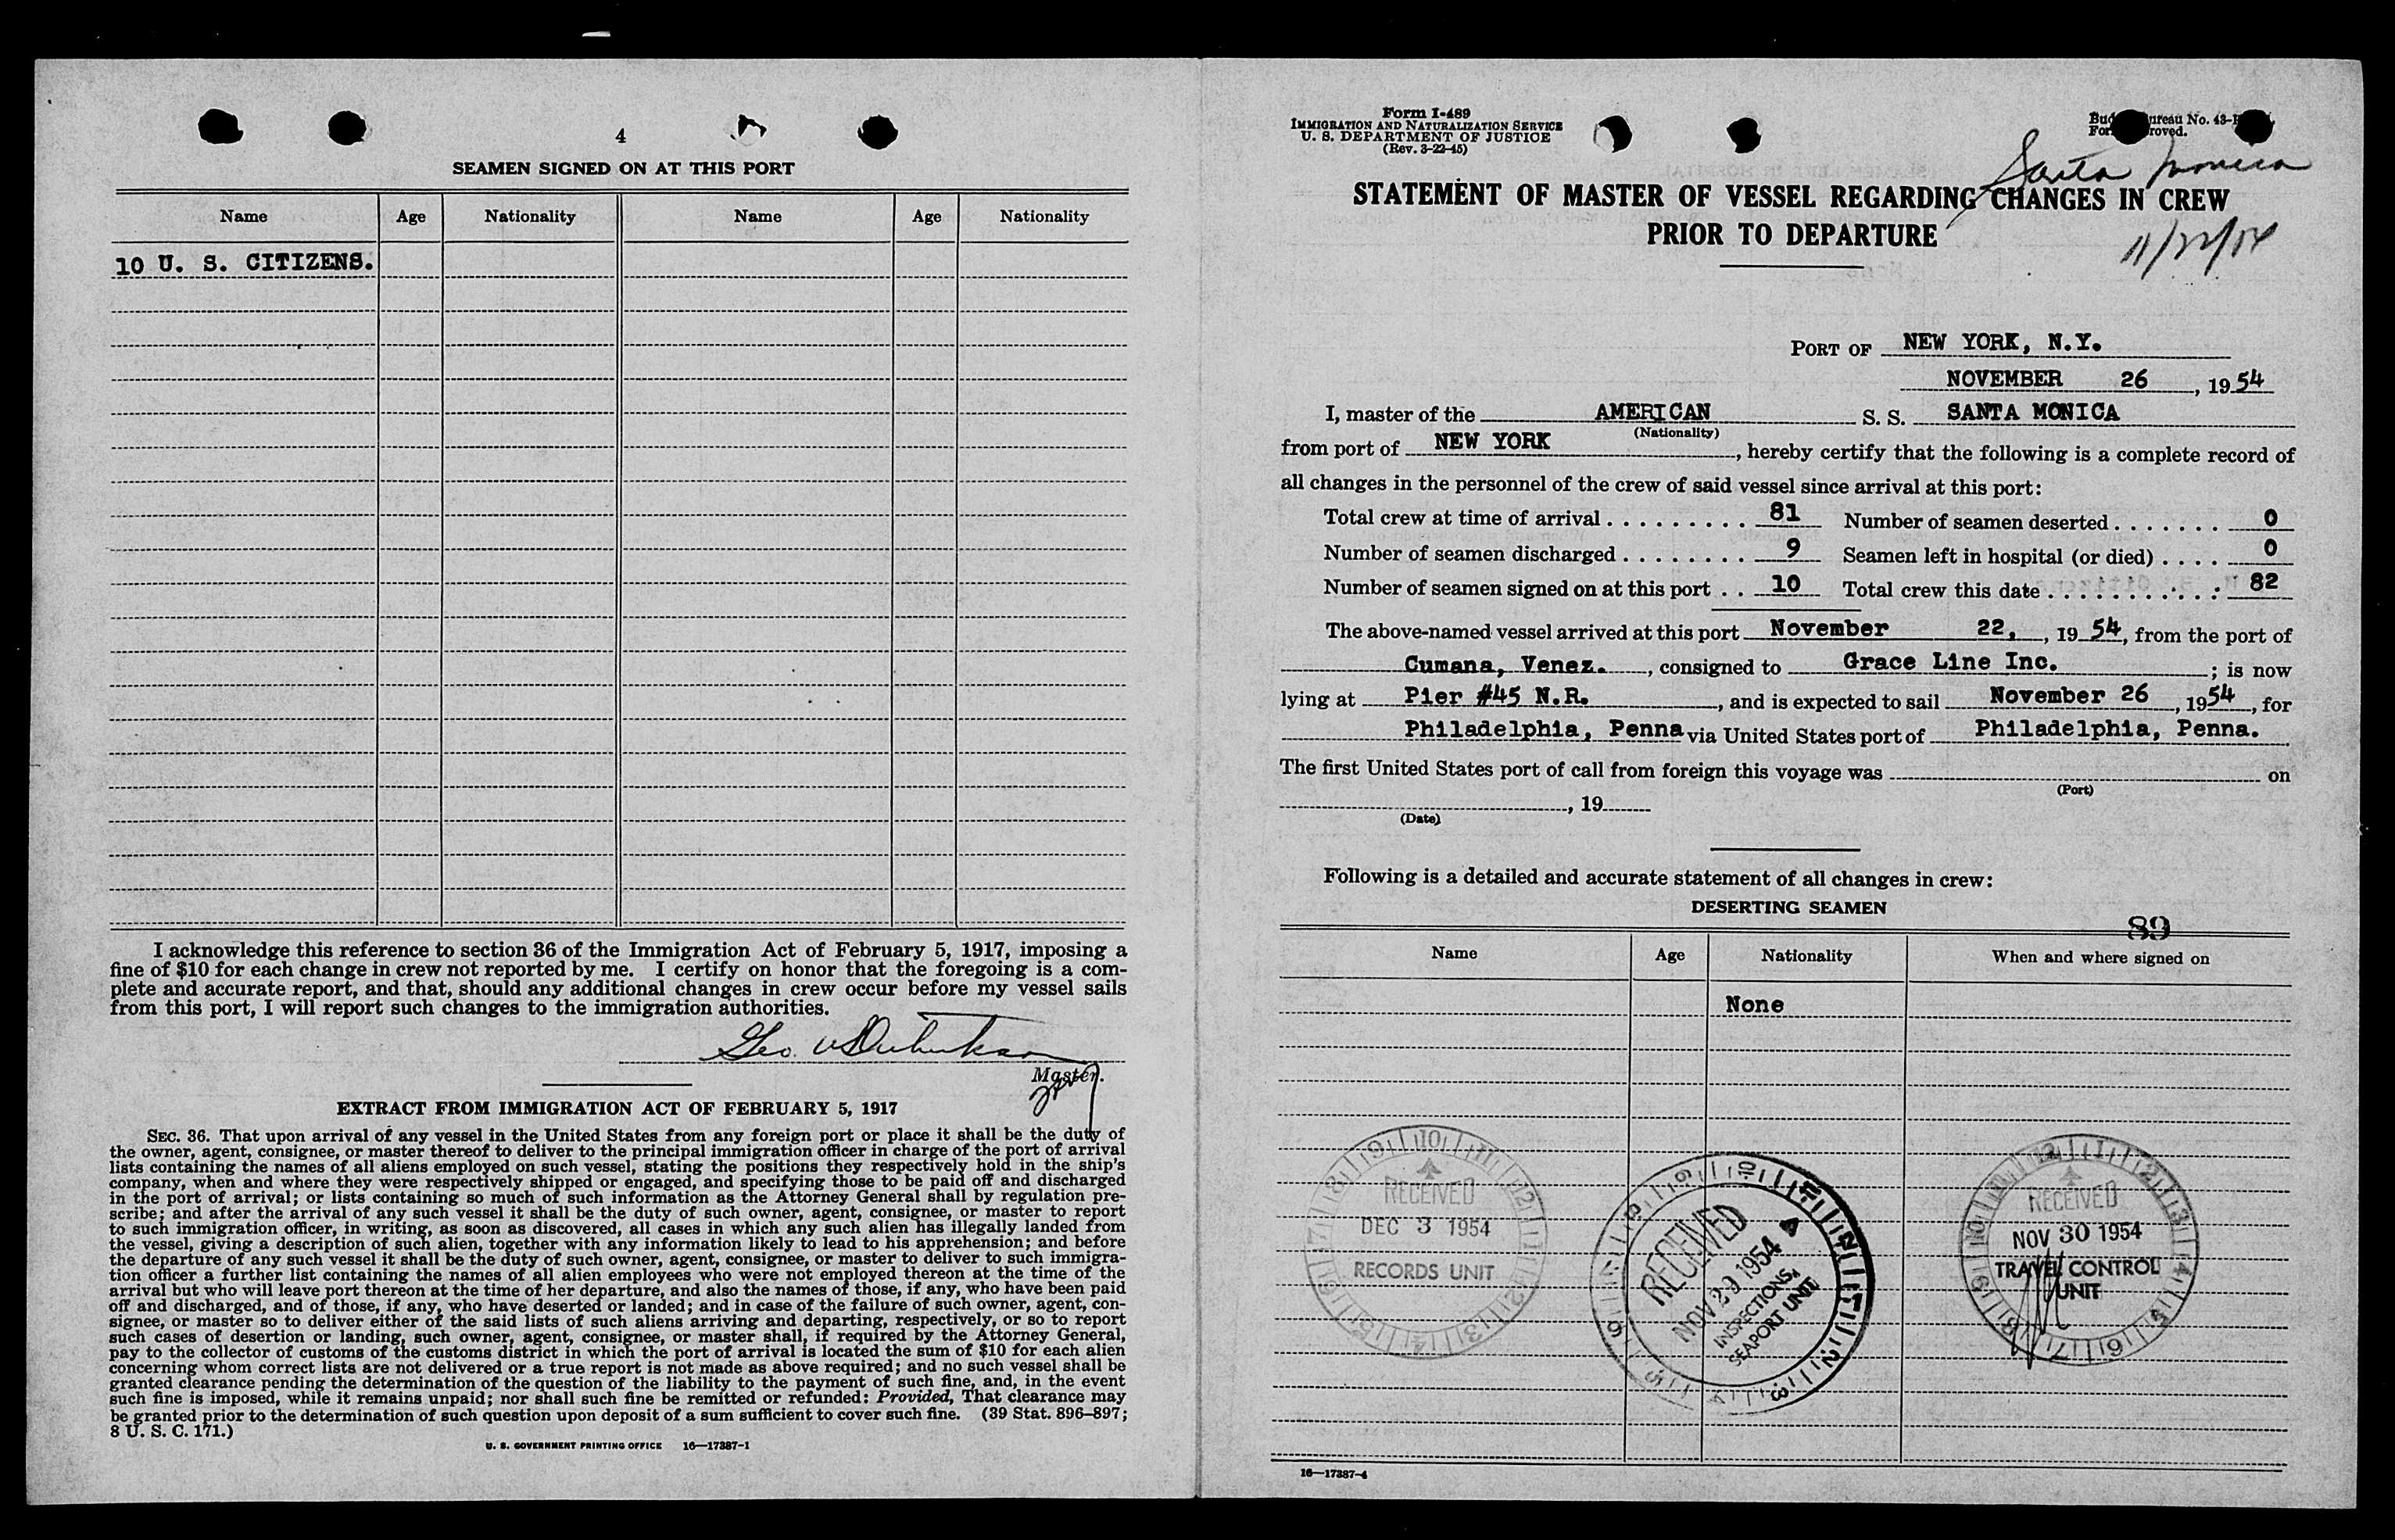 4
SEAMEN SIGNED ON AT THIS PORT
Name Age Nationality Name Age Nationality
10 U. S. CITIZENS.
I acknowledge this reference to section 36 of the Immigration Act of February 5, 1917, imposing a
fine of $10 for each change in crew not reported by me. I certify on honor that the foregoing is a com-
plete and accurate report, and that, should any additional changes in crew occur before my vessel sails
from this port, I will report such changes to the immigration authorities.
Geo.
Master.
EXTRACT FROM IMMIGRATION ACT OF FEBRUARY 5, 1917
SEC. 36. That upon arrival of any vessel in the United States from any foreign port or place it shall be the duty of
the owner, agent, consignee, or master thereof to deliver to the principal immigration officer in charge of the port of arrival
lists containing the names of all aliens employed on such vessel, stating the positions they respectively hold in the ship's
company, when and where they were respectively shipped or engaged, and specifying those to be paid off and discharged
in the port of arrival; or lists containing so much of such information as the Attorney General shall by regulation pre-
scribe; and after the arrival of any such vessel it shall be the duty of such owner, agent, consignee, or master to report
to such immigration officer, in writing, as soon as discovered, all cases in which any such alien has illegally landed from
the vessel, giving a description of such alien, together with any information likely to lead to his apprehension; and before
the departure of any such vessel it shall be the duty of such owner, agent, consignee, or master to deliver to such immigra-
tion officer a further list containing the names of all alien employees who were not employed thereon at the time of the
arrival but who will leave port thereon at the time of her departure, and also the names of those, if any, who have been paid
off and discharged, and of those, if any, who have deserted or landed; and in case of the failure of such owner, agent, con-
signee, or master so to deliver either of the said lists of such aliens arriving and departing, respectively, or so to report
such cases of desertion or landing, such owner, agent, consignee, or master shall, if required by the Attorney General,
pay to the collector of customs of the customs district in which the port of arrival is located the sum of $10 for each alien
concerning whom correct lists are not delivered or a true report is not made as above required; and no such vessel shall be
granted clearance pending the determination of the question of the liability to the payment of such fine, and, in the event
such fine is imposed, while it remains unpaid; nor shall such fine be remitted or refunded: Provided, That clearance may
be granted prior to the determination of such question upon deposit of a sum sufficient to cover such fine. (39 Stat. 896–897;
8 U. S. C. 171.)
U. S. GOVERNMENT PRINTING OFFICE 16—17387-1
Form I-489
IMMIGRATION AND NATURALIZATION SERVICE
U. S. DEPARTMENT OF JUSTICE
(Rev. 3-22-45)
No. 43-
Santa Monica
STATEMENT OF MASTER OF VESSEL REGARDING CHANGES IN CREW
PRIOR TO DEPARTURE
11/22/54
PORT OF NEW YORK, N.Y.
NOVEMBER 26, 1954
I, master of the AMERICAN S. S. SANTA MONICA
(Nationality)
from port of NEW YORK, hereby certify that the following is a complete record of
all changes in the personnel of the crew of said vessel since arrival at this port:
Total crew at time of arrival . . . . . . . . . 81 Number of seamen deserted . . . . . . . 0
Number of seamen discharged . . . . . . . . 9 Seamen left in hospital (or died) . . . . 0
Number of seamen signed on at this port . . 10 Total crew this date . . . . . . . . . . . 82
The above-named vessel arrived at this port November 22, , 1954, from the port of
Cumana, Venez. , consigned to Grace Line Inc. ; is now
lying at Pier #45 N.R. , and is expected to sail November 26 , 1954, for
Philadelphia, Penna via United States port of Philadelphia, Penna.
The first United States port of call from foreign this voyage was on
(Port)
, 19
(Date)
Following is a detailed and accurate statement of all changes in crew:
DESERTING SEAMEN
89
Name Age Nationality When and where signed on
None
RECEIVED
DEC 3 1954
RECORDS UNIT
RECEIVED
NOV 29 1954
INSPECTIONS
SEAPORT UNIT
RECEIVED
NOV 30 1954
TRAVEL CONTROL
UNIT
16—17387-4